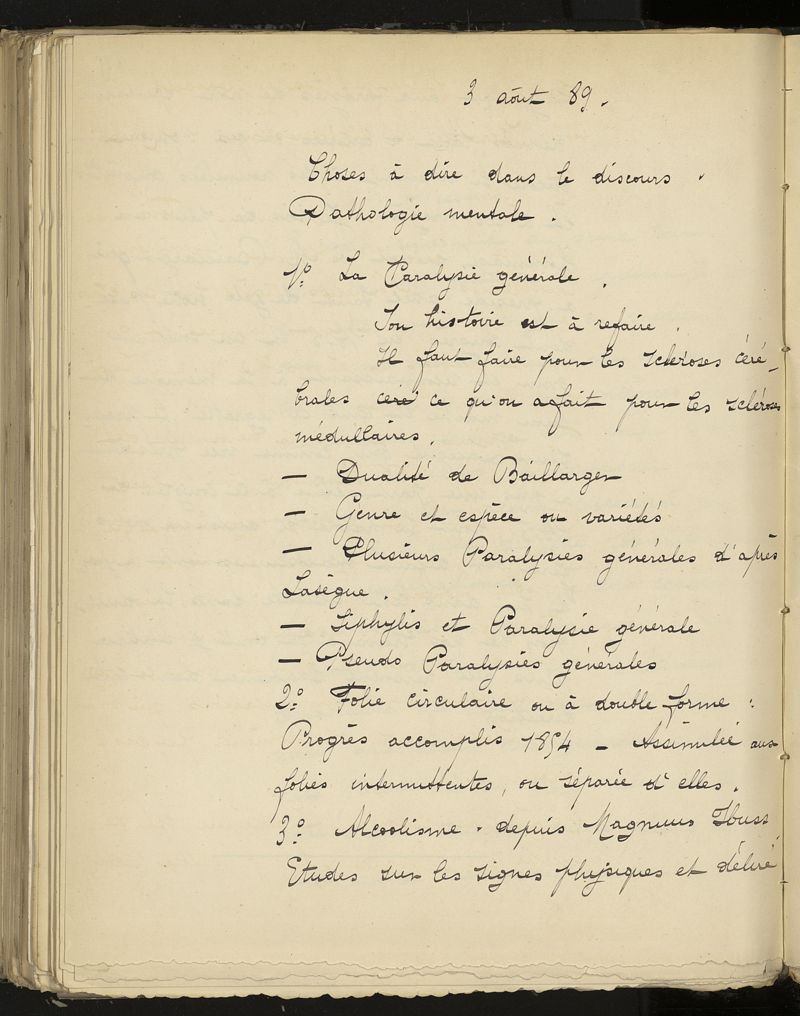 3 août 89.
Choses à dire dans le discours.
Pathologie mentale.
1º. La Paralysie générale.
Son histoire est à refaire.
Il faut faire pour les scleroses céré-
brales céré ce qu'on a fait pour les scléroses
médullaires.
— Dualité de Baillarger
— Genre et espèce ou variétés
— Plusieurs Paralysies générales d'après
Lasègue.
— Siphylis et Paralysie générale
— Pseudo Paralysies générales
2º. Folie circulaire ou à double forme :
Progrès accomplis 1854 — Assimilée aux
folies intermittentes, ou séparée d'elles.
3º. Alcoolisme. depuis Magnus Huss
Etudes sur les signes physiques et délire